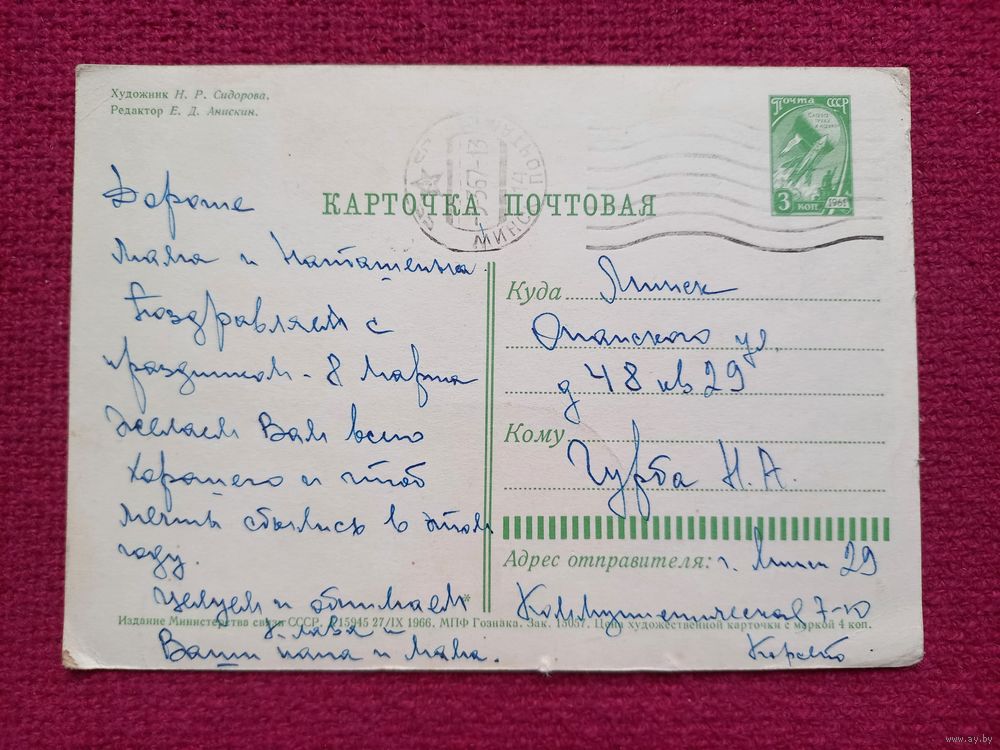 Художник Н. Р. Сидорова.
Редактор Е. Д. Анискин.
Почта СССР
3 коп
1961
МИНСК
КАРТОЧКА ПОЧТОВАЯ
Дорогие
мама и Наташенька
Поздравляем с
праздником - 8 марта
Желаем Вам всего
хорошего и чтоб
мечты сбылись в этом
году.
Целуем и обнимаем
Ваши папа и
Куда Минск
ул.
д 48 кв 29
Кому
Чурба Н. А.
Адрес отправителя: г. Минск 29
Коммунистическая 7-10
Издание Министерства связи СССР. 15945 27/IX 1966. МПФ Гознака. Зак. 15057. Цена художественной карточки с маркой 4 коп.
www.ay.by